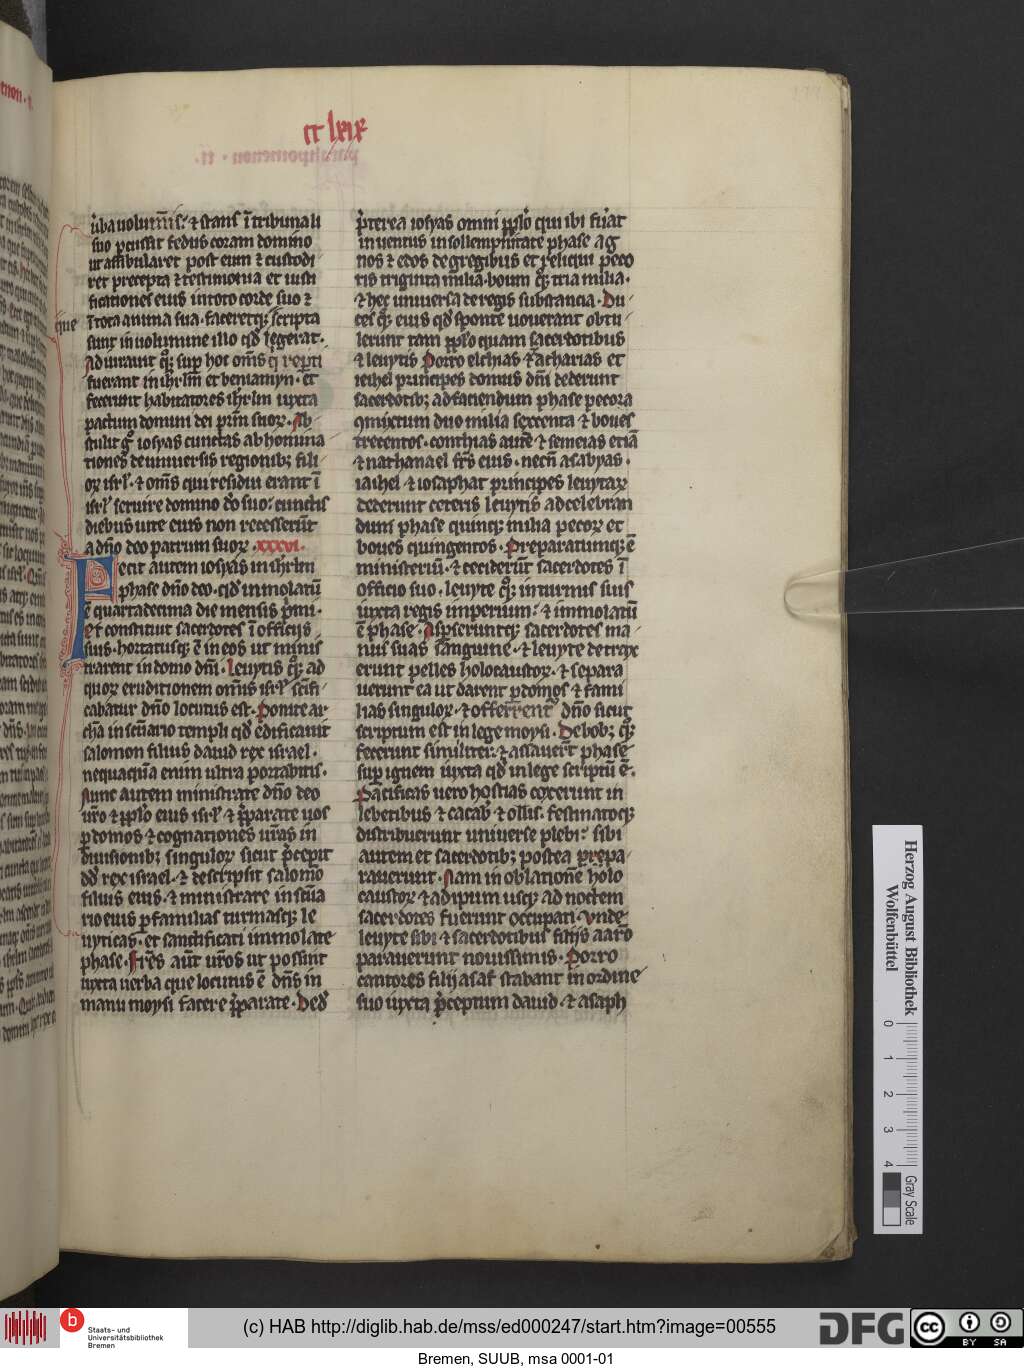 cc lxix
uba uolumis: ⁊ stans ı̄ tribunali
suo ꝑcussit fedus coram domino
ut ambularet post eum ⁊ custodi
ret precepta ⁊ testimonia et iusti
ficationes eius in toto corde suo ⁊
que
ı̄ tota anima sua. faceretqꝫ scripta
sunt in uolumine illo qd̄ legerat.
Adiurauit qꝫ sup hoc om̄s q̄ reꝑti
fuerant in ihrlm̄ et beniamyn. et
fecerunt habitatores ihrlm iuxta
pactum domini dei pr̄m suoꝝ. Ab
stulit gͦ iosyas cunctas abhomina
tiones de uniuersis regionibꝫ fili
oꝝ isrl̄. ⁊ om̄s qui residui erant ı̄
isrl̄ seruire domino do suo. cunctis
diebus uite eius non recesserūt
a dn̄o deo patrum suoꝝ. xxxvi.
Fecit autem iosyas in ihrlm
phase dn̄o deo. qd̄ immolatū
ē quartadecima die mensis pͥmi.
et constituit sacerdotes ı̄ officijs
suis. hortatusqꝫ ē in eos ut minis
trarent in domo dn̄i. Leuytis qꝫ ad
quoꝝ eruditionem om̄is isrl̄ scīfi
cabatur dn̄o locutus est. Ponite ar
chā in scn̄ario templi qd̄ edificauit
salomon filius dauid rex israel.
nequaquā enim ultra portabitis.
Nunc autem ministrate dn̄o deo
ur̄o ⁊ ppl̄o eius isrl̄ ⁊ p̄parate uos
ꝑ domos ⁊ cognationes ur̄as in
diuisionibꝫ singuloꝝ sicut p̄cepit
dd̄ rex israel. ⁊ descripsit salomō
filius eius. ⁊ ministrate in scūa
rio eius ꝑ familias turmasqꝫ le
uyticas. et sanctificati immolate
phase. Fr̄es aūt ur̄os ut possint
iuxta uerba que locutus ē dn̄s in
manu moysi facere p̄parate. Ded̄
p̄terea iosyas omni ppl̄o qui ibi fūat
inuentus in sollempnitate phase ag
nos ⁊ edos de gregibus et reliqui peco
ris triginta milia. boum qꝫ tria milia.
⁊ hec uniuersa de regis substancia. Du
ces qꝫ eius qd̄ sponte uouerant obtu
lerunt tam ppl̄o quam sacerdotibus
⁊ leuytis Porro elchias ⁊ zacharias et
ieihel principes domus dn̄i dederunt
sacerdotibꝫ ad faciendum phase pecora
ꝯmixtum duo milia sexcenta ⁊ boues
trecentos. conthias autē ⁊ semeias etiā
⁊ nathanael frs̄ eius. necn̄ asabyas.
iaihel ⁊ iosaphat principes leuytaꝝ
dederunt ceteris leuytis ad celebran
dum phase quinqꝫ milia pecoꝝ et
boues quingentos. Preparatumqꝫ ē
ministeriū. ⁊ steterūt sacerdotes ı̄
officio suo. leuyte qꝫ in turmis suis
iuxta regis imperium: ⁊ immolatū
ē phase. Aspseruntqꝫ sacerdotes ma
nus suas sanguine. ⁊ leuyte detrax
erunt pelles holocaustoꝝ. ⁊ separa
uerunt ea ut darent ꝑ domos ⁊ fami
lias singuloꝝ. ⁊ offerrent dn̄o sicut
scriptum est in lege moysi. De bobꝫ qꝫ
fecerunt similiter. ⁊ assauert̄ phase
sup ignem iuxta qd̄ in lege scriptū ē.
Pacificas uero hostias coxerunt in
lebetibus ⁊ cacab ⁊ ollis. festinatoqꝫ
distribuerunt uniuerse plebi: sibi
autem et sacerdotibꝫ postea prepa
rauerunt. Nam in oblationē holo
caustoꝝ ⁊ adipum usqꝫ ad noctem
sacerdotes fuerunt occupati. Vnde
leuyte sibi ⁊ sacerdotibus filijs aarō
parauerunt nouissimis. Porro
cantores filij asaf stabant in ordine
suo iuxta p̄ceptum dauid. ⁊ asaph
Herzog August Bibliothek
Wolfenbüttel
0 1 2 3 4
Gray Scale
b
Staats- und
Universitätsbibliothek
Bremen
(c) HAB http://diglib.hab.de/mss/ed000247/start.htm?image=00555
DFG
cc BY SA
Bremen, SUUB, msa 0001-01